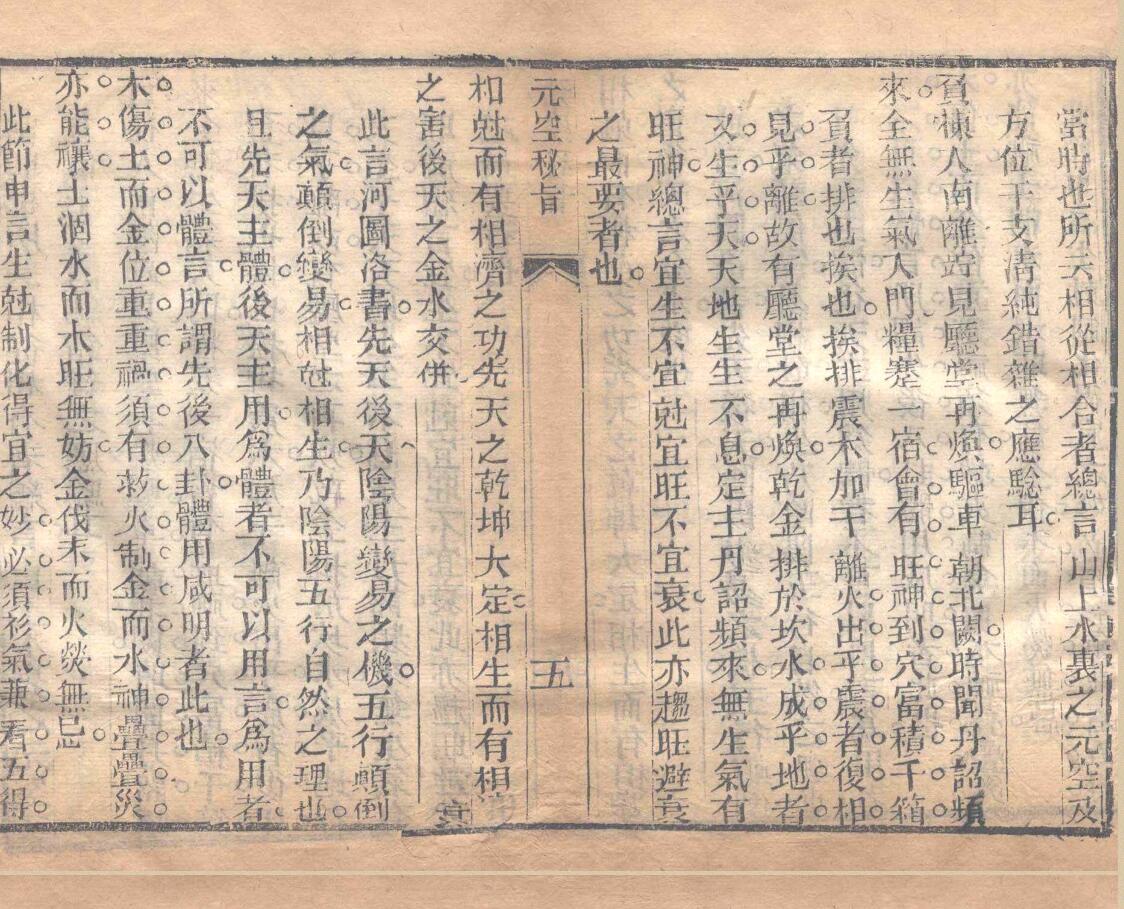 當時也所云相從相合者總言山上水裏之元空及
方位干支清純錯雜之應驗耳
負棟入南離竚見廳堂再煥驅車朝北闕時聞丹詔頻
來全無生氣入門糧蹇一宿會有旺神到穴富積千箱
負者排也挨也挨排震木加干離火出乎震者復相
見乎離故有廳堂之再煥乾金排於坎水成乎地者
又生乎天天地生生不息定主丹詔頻來無生氣有
旺神總言宜生不宜尅宜旺不宜衰此亦趨旺避衰
之最要者也
元空秘旨
五
相尅而有相濟之功先天之乾坤大定相生而有相
之害後天之金水交併
此言河圖洛書先天後天陰陽變易之機五行顛倒
之氣顛倒變易相尅相生乃陰陽五行自然之理也
且先天主體後天主用爲體者不可以用言爲用者
不可以體言所謂先後八卦體用咸明者此也
木傷土而金位重重禍須有救火制金而水神疊疊災
亦能禳土涸水而木旺無妨金伐木而火熒無忌
此節申言生尅制化得宜之妙必須衫氣兼看五得